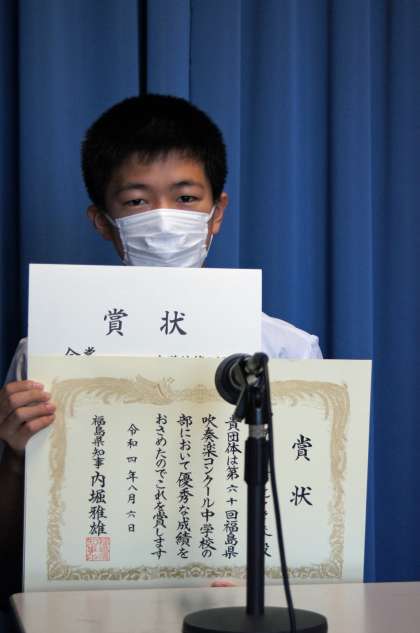 賞状
賞状
貴団体は第六十回福島県
吹奏楽コンクール中学校の
部において優秀な成績を
おさめたのでこれを賞します
令和四年八月六日
福島県知事 内堀雅雄